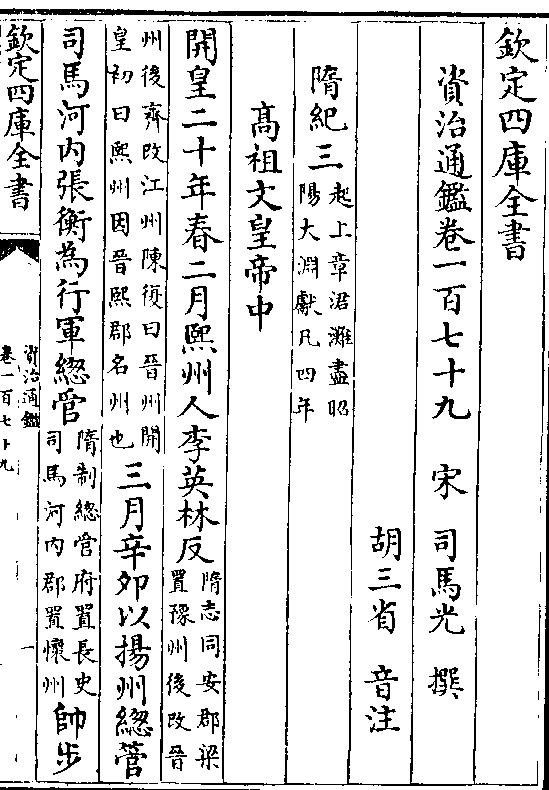 欽定四庫全書
資治通鑑卷一百七十九　宋　司馬光　撰
胡三省　音注
隋紀三起上章涒灘盡昭陽大淵獻凡四年
高祖文皇帝中
開皇二十年春二月熙州人李英林反隋志同安郡梁置豫州後改晉
州後齊改江州陳復曰晉州開皇初曰熙州因晉熙郡名州也三月辛夘以揚州總管
司馬河內張衡為行軍總管隋制總管府置長史司馬河內郡置懷州帥步
欽定四庫全書
資治通鑑
卷一百七十九
一